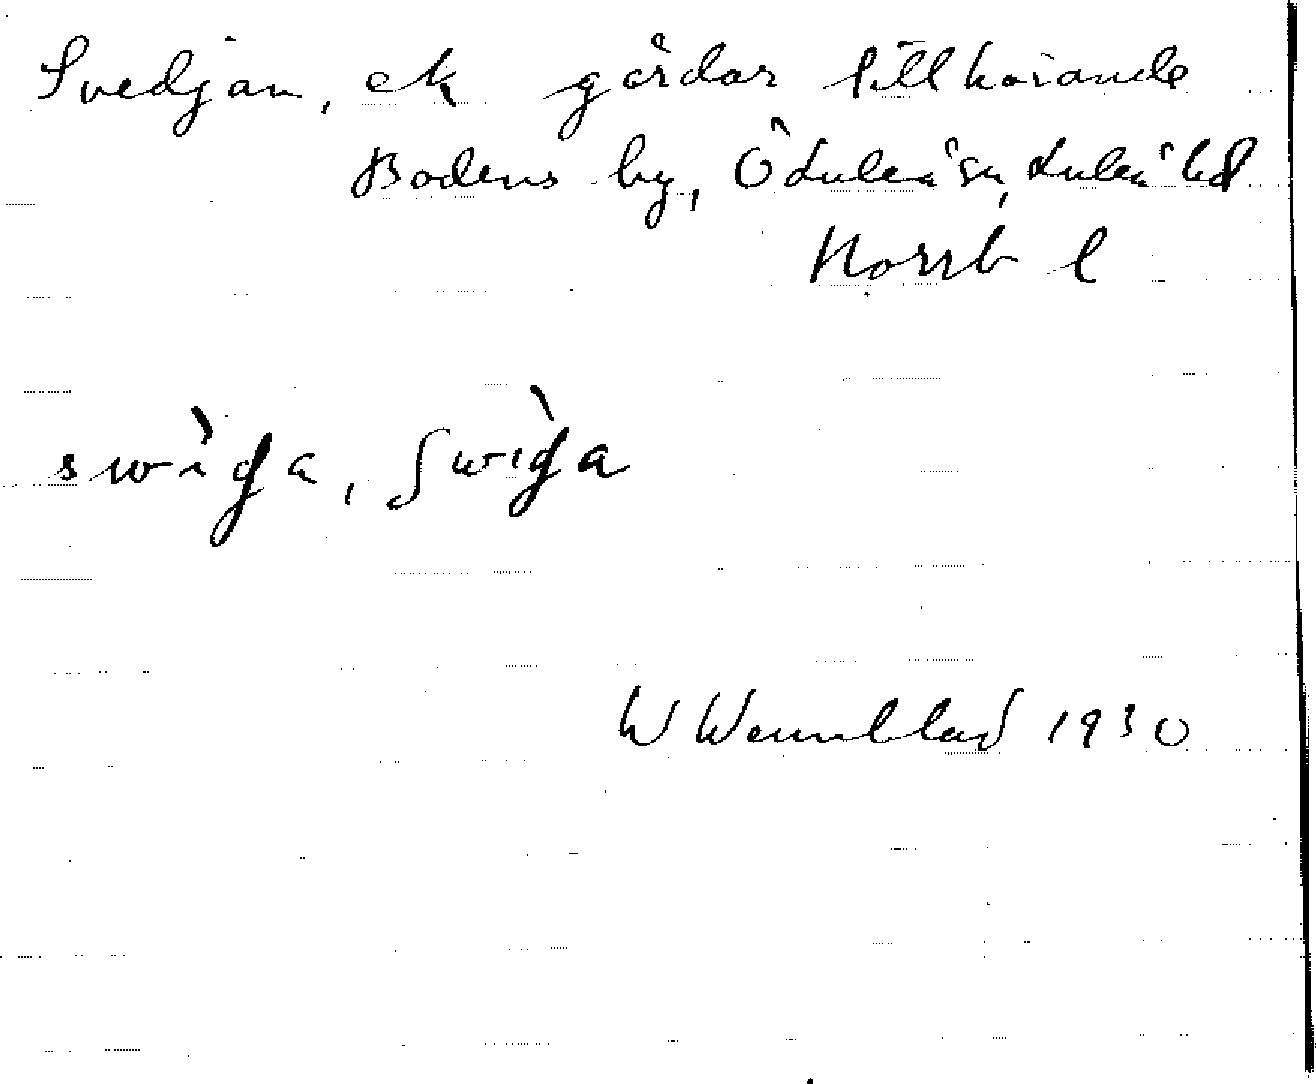 Svedjan, ek gårdar tillhörande
Bodens by, Ö Luleå sn, Luleå hd
Norrb l
W Wennblad 1930